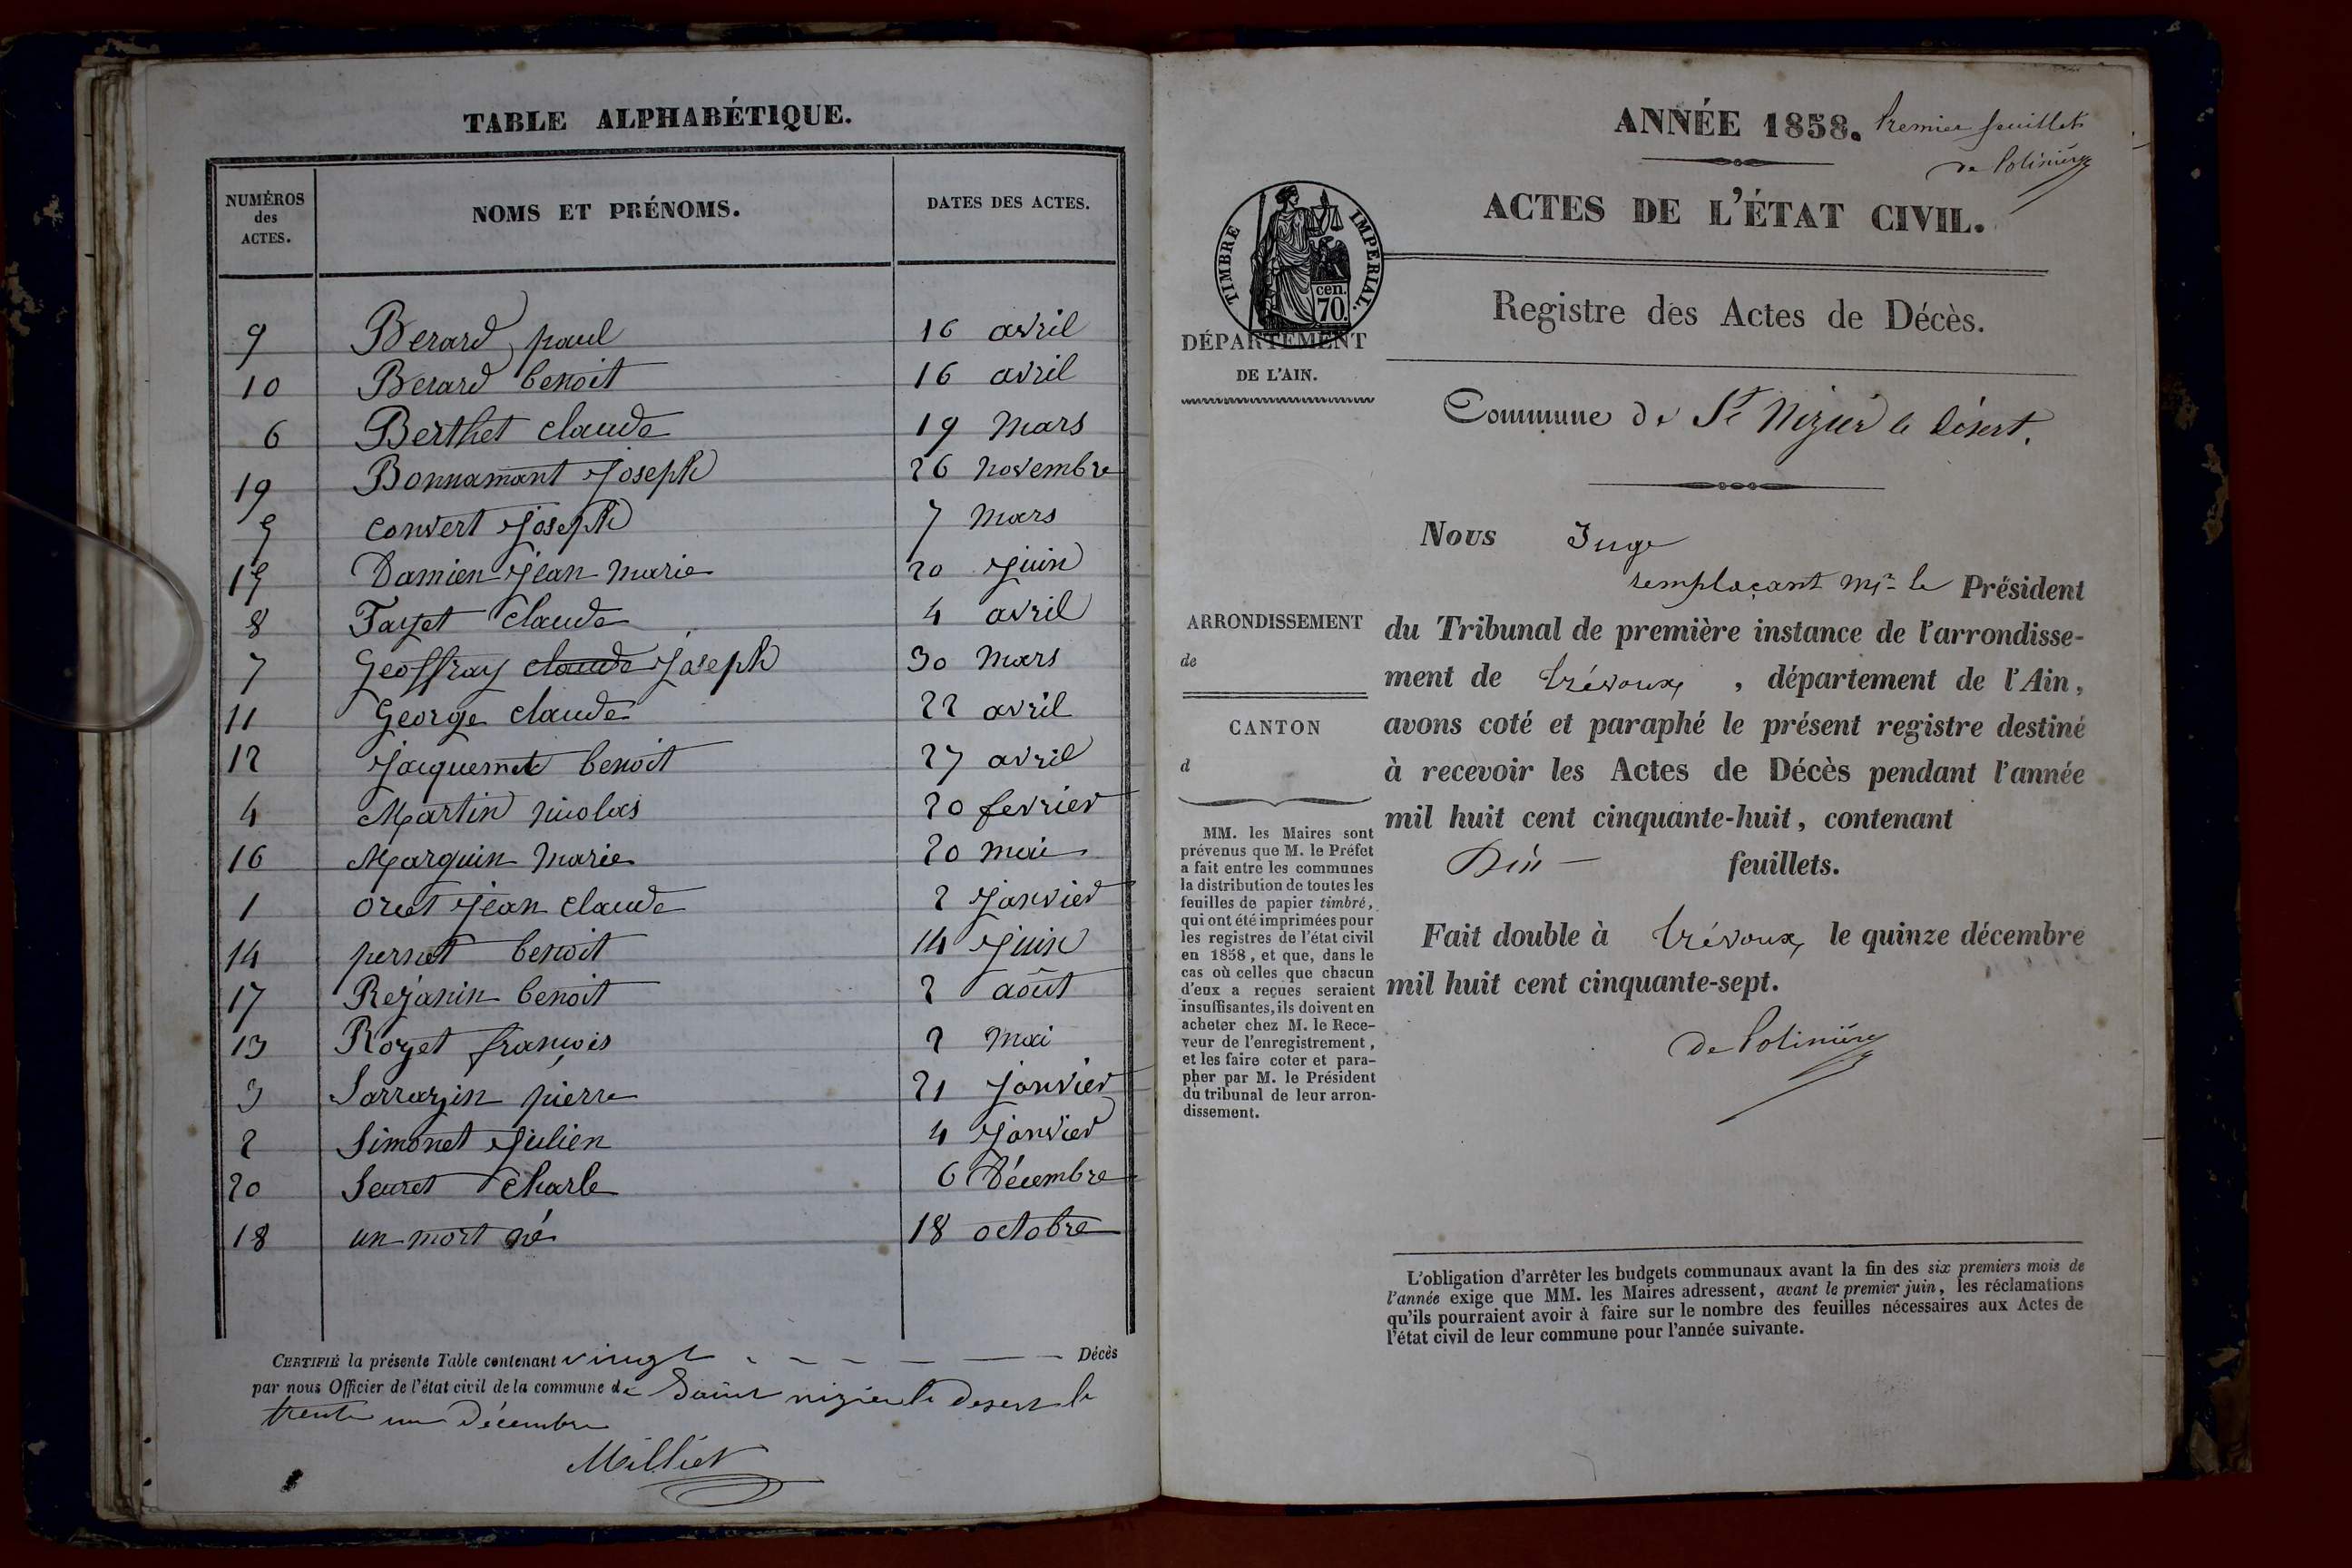 TABLE ALPHABÉTIQUE.
NUMÉROS des ACTES. NOMS ET PRÉNOMS. DATES DES ACTES.
9 Berard paul 16 avril
10 Berard benoit 16 avril
6 Berthet claude 19 mars
19 Bonnamant joseph 26 novembre
5 convert joseph 7 mars
15 Damien jean marie 20 juin
8 Fayet claude 4 avril
7 geoffray claude joseph 30 mars
11 george claude 22 avril
12 jacquemet benoit 27 avril
4 Martin nicolas 20 fevrier
16 Marguin marie 20 mai
1 oret jean claude 2 janvier
14 pernet benoit 14 juin
17 Rejanin benoit 2 août
13 Royet françois 2 mai
3 Sarrazin pierre 21 janvier
2 Simonet julien 4 janvier
20 Seuret charle 6 Décembre
18 un mort né 18 octobre
CERTIFIÉ la présente Table contenant vingt Décès
par nous Officier de l'état civil de la commune de Saint nizier le desert le
trente un Décembre
Milliet
ANNÉE 1858. Premier feuillet
de Polinière
ACTES DE L'ÉTAT CIVIL.
TIMBRE IMPERIAL.
cen.
70.
Registre des Actes de Décès.
DÉPARTEMENT
DE L'AIN.
Commune de St Nizier le Désert.
Nous Juge
remplaçant Mr le Président
ARRONDISSEMENT
de
du Tribunal de première instance de l'arrondisse-
ment de Trévoux, département de l'Ain,
avons coté et paraphé le présent registre destiné
à recevoir les Actes de Décès pendant l'année
mil huit cent cinquante-huit, contenant
feuillets.
CANTON
d
MM. les Maires sont
prévenus que M. le Préfet
a fait entre les communes
la distribution de toutes les
feuilles de papier timbré,
qui ont été imprimées pour
les registres de l'état civil
en 1858, et que, dans le
cas où celles que chacun
d'eux a reçues seraient
insuffisantes, ils doivent en
acheter chez M. le Rece-
veur de l'enregistrement,
et les faire coter et para-
pher par M. le Président
du tribunal de leur arron-
dissement.
Fait double à Trévoux, le quinze décembre
mil huit cent cinquante-sept.
de Polinière
L'obligation d'arrêter les budgets communaux avant la fin des six premiers mois de
l'année exige que MM. les Maires adressent, avant le premier juin, les réclamations
qu'ils pourraient avoir à faire sur le nombre des feuilles nécessaires aux Actes de
l'état civil de leur commune pour l'année suivante.